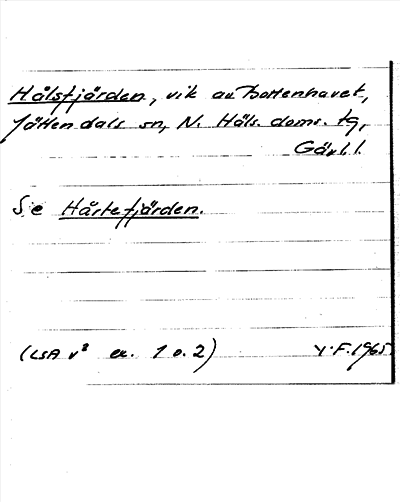 Hålsfjärden, vik av Bottenhavet,
Jättendals sn, N. Häls. doms. tg,
Gävl.l.
Se Hårtefjärden.
(LSA v³ ex. 1 o. 2) Y.F. 1965